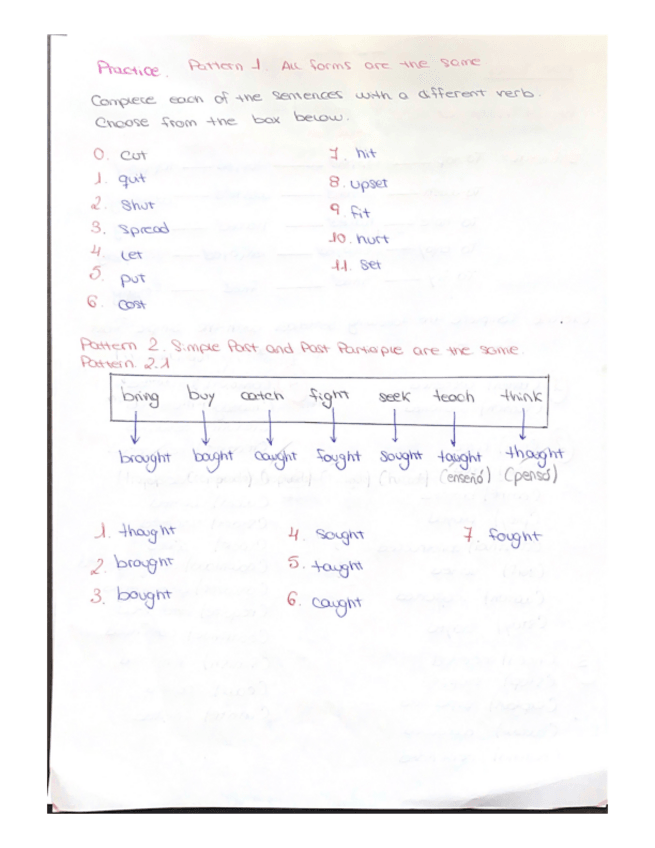 Practice. Pattern 1. All forms are the same
Complete each of the sentences with a different verb.
Choose from the box below.
0. cut
1. quit
2. Shut
3. Spread
4. Let
5. put
6. cost
7. hit
8. upset
9. fit
10. hurt
11. set
Pattern 2. Simple Past and Past Participle are the same.
Pattern 2.1
bring buy catch fight seek teach think
brought bought caught fought sought taught thought
(enseñó) (pensó)
1. thought
2. brought
3. bought
4. sought
5. taught
6. caught
7. fought